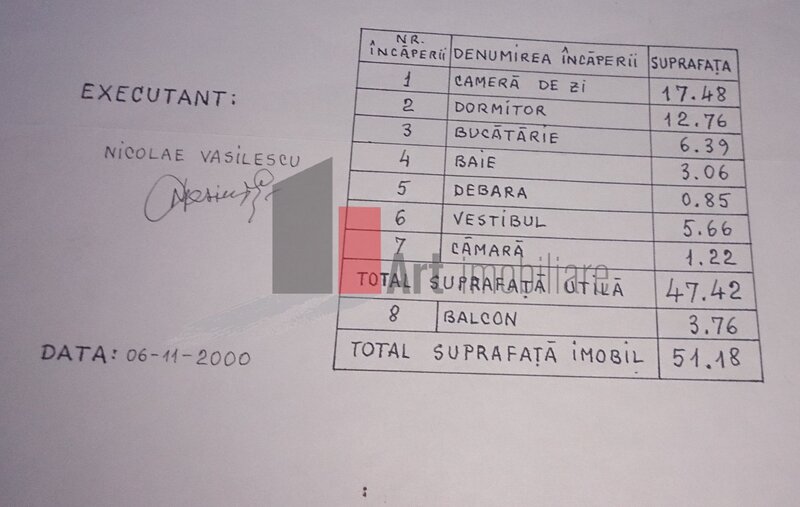 EXECUTANT:
NICOLAE VASILESCU
DATA: 06-11-2000
NR. ÎNCĂPERII DENUMIREA ÎNCĂPERII SUPRAFAȚA
1 CAMERĂ DE ZI 17.48
2 DORMITOR 12.76
3 BUCĂTĂRIE 6.39
4 BAIE 3.06
5 DEBARA 0.85
6 VESTIBUL 5.66
7 CĂMARĂ 1.22
TOTAL SUPRAFAȚĂ UTILĂ 47.42
8 BALCON 3.76
TOTAL SUPRAFAȚĂ IMOBIL 51.18
Art imobiliare